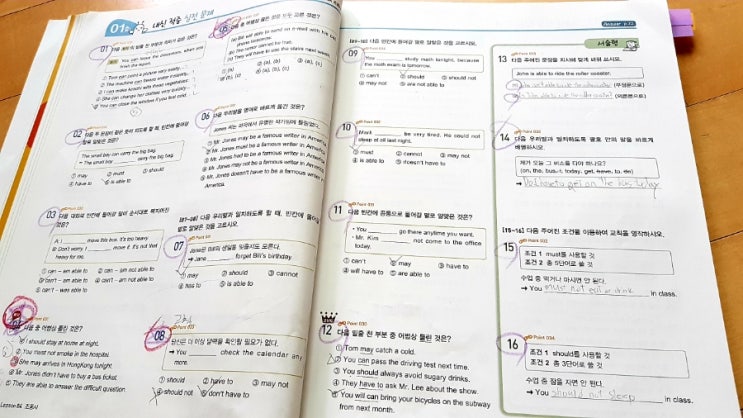 내신 적중 실전 문제
01
You can leave the classroom when you finish the report.
① Tom can paint a picture very easily.
② The machine can freeze water instantly.
③ I can make kimchi with these vegetables.
④ She can change her clothes very quickly.
⑤ You can close the window if you feel cold.
02
The small boy can carry the big bag.
= The small boy ______ carry the big bag.
① may ② must ③ should
④ have to ⑤ is able to
03
A: I ______ move this box. It's too heavy.
B: Don't worry. I ______ move it. It's not that heavy for me.
① can – am able to ② can – am not able to
③ can't – am able to ④ can't – am not able to
⑤ can't – was able to
04
다음 중 어법상 틀린 것은?
① I should stay at home at night.
② You must not smoke in the hospital.
③ She may arrives in Hongkong tonight.
④ Mr. Jones didn't have to buy a bus ticket.
⑤ They are able to answer the difficult question.
Lesson 04 조동사
(c) They will have to use the stairs next week.
06
다음 우리말을 영어로 바르게 옮긴 것은?
① Mr. Jones may be a famous writer in America.
② Mr. Jones must be a famous writer in America.
③ Mr. Jones had to be a famous writer in America.
④ Mr. Jones may not be a famous writer in America.
⑤ Mr. Jones doesn't have to be a famous writer in America.
[07~08] 다음 우리말과 일치하도록 할 때, 빈칸에 들어갈 말로 알맞은 것을 고르시오.
07
Jane은 Bill의 생일을 잊을지도 모른다.
→ Jane ______ forget Bill's birthday.
① may ② should ③ cannot
④ has to ⑤ is able to
08
당신은 더 이상 달력을 확인할 필요가 없다.
→ You ______ check the calendar any more.
① should ② have to ③ may not
④ should not ⑤ don't have to
[09~10] 다음 빈칸에 들어갈 말로 알맞은 것을 고르시오.
09
You ______ study math tonight, because the math exam is tomorrow.
① can't ② should ③ should not
④ may not ⑤ are not able to
10
Mark ______ be very tired. He could not sleep at all last night.
① must ② cannot ③ may not
④ is able to ⑤ doesn't have to
11
다음 빈칸에 공통으로 들어갈 말로 알맞은 것은?
· You ______ go there anytime you want.
· Mr. Kim ______ not come to the office today.
① can't ② may ③ have to
④ will have to ⑤ are able to
12
다음 밑줄 친 부분 중 어법상 틀린 것은?
① Tom may catch a cold.
② You can pass the driving test next time.
③ You should always avoid sugary drinks.
④ They have to ask Mr. Lee about the show.
⑤ You will can bring your bicycles on the subway from next month.
서술형
13 다음 주어진 문장을 지시에 맞게 바꿔 쓰시오.
John is able to ride the roller coaster.
(부정문으로)
(의문문으로)
14 다음 우리말과 일치하도록 괄호 안의 말을 바르게 배열하시오.
제가 오늘 그 버스를 타야 하나요?
(on, the, bus, I, today, get, have, to, do)
→ Do I have to get on the bus today
[15~16] 다음 주어진 조건을 이용하여 교칙을 영작하시오.
15
조건 1 must를 사용할 것
조건 2 총 5단어로 쓸 것
수업 중 먹거나 마시면 안 된다.
→ You must not eat or drink in class.
16
조건 1 should를 사용할 것
조건 2 총 3단어로 쓸 것
수업 중 잠을 자면 안 된다.
→ You should not sleep in class.